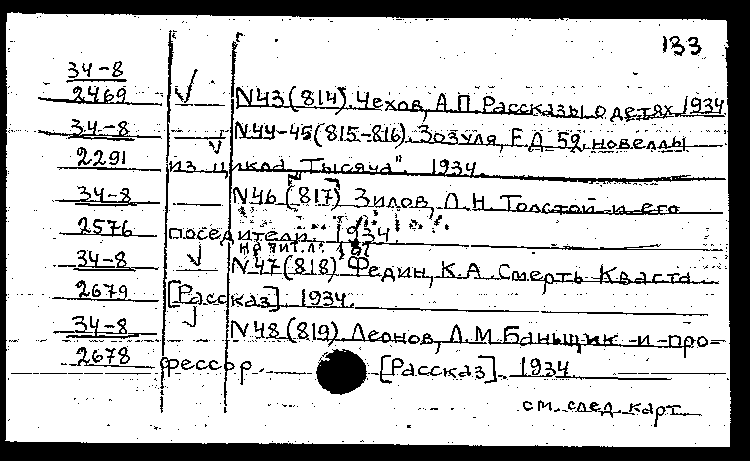 133
34-8
2469 √ N43(814). Чехов, А.П. Рассказы о детях 1934
34-8 √ N44-45(815-816). Зозуля, Е.Д. 52 новеллы
2291 из цикла „Тысяча". 1934.
34-8 N46 (817) Зилов, Л.Н. Толстой и его
2576 поседители 1934.
34-8 √ N47(818) Федин, К.А. Смерть Кваста
2679 [Рассказ]. 1934.
34-8 √ N48(819). Леонов, Л.М. Баньщик и про-
2678 фессор. [Рассказ]. 1934
см. след. карт.